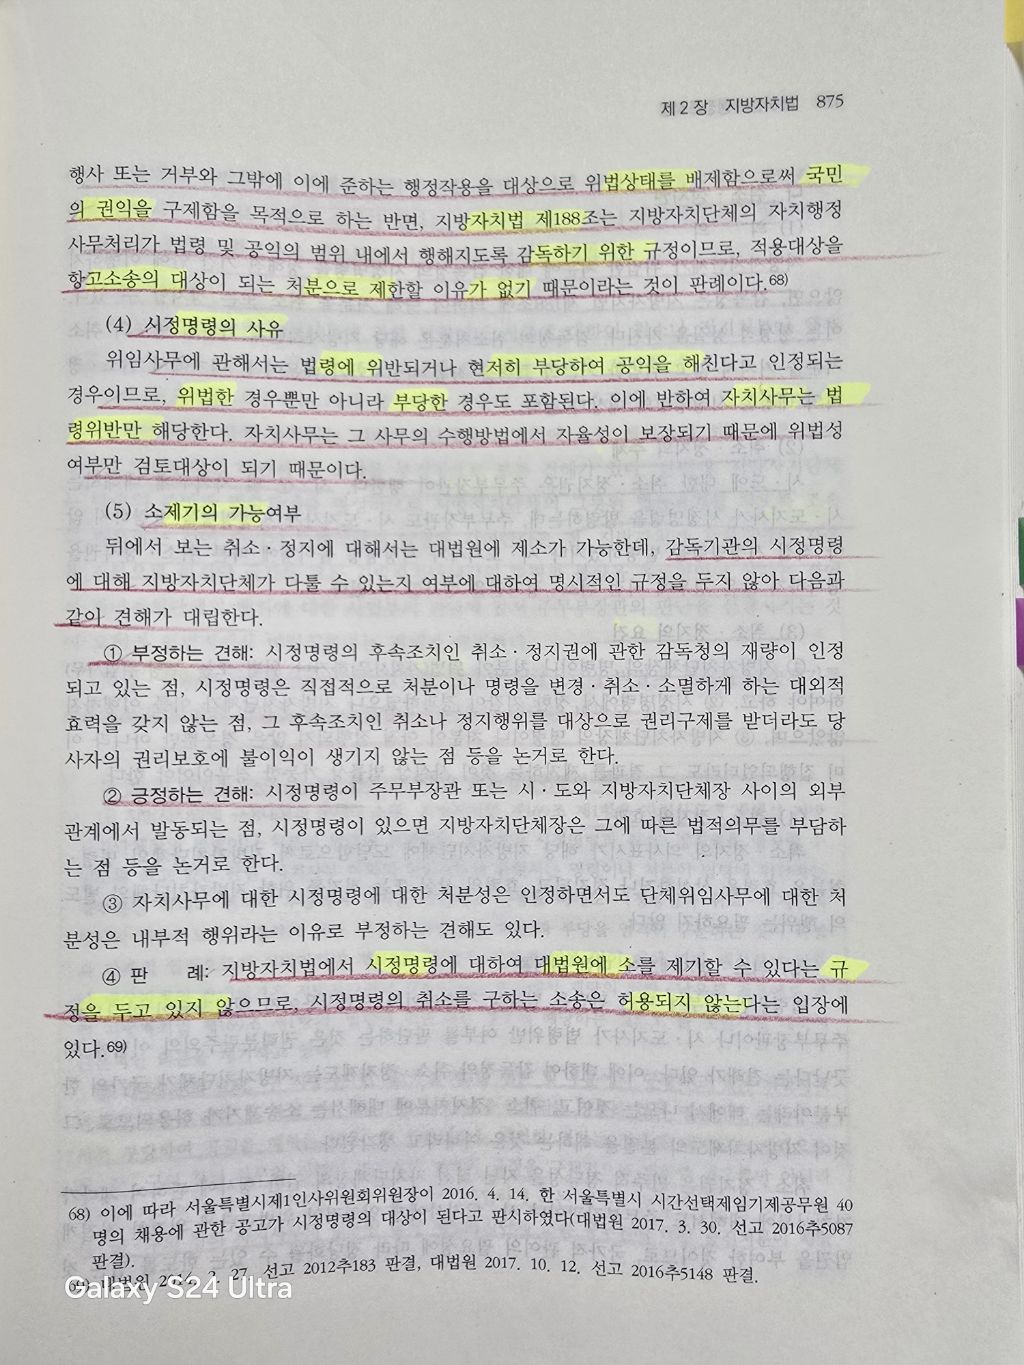 제 2 장 지방자치법 875
행사 또는 거부와 그밖에 이에 준하는 행정작용을 대상으로 위법상태를 배제함으로써 국민
의 권익을 구제함을 목적으로 하는 반면, 지방자치법 제188조는 지방자치단체의 자치행정
사무처리가 법령 및 공익의 범위 내에서 행해지도록 감독하기 위한 규정이므로, 적용대상을
항고소송의 대상이 되는 처분으로 제한할 이유가 없기 때문이라는 것이 판례이다.68)
(4) 시정명령의 사유
위임사무에 관해서는 법령에 위반되거나 현저히 부당하여 공익을 해친다고 인정되는
경우이므로, 위법한 경우뿐만 아니라 부당한 경우도 포함된다. 이에 반하여 자치사무는 법
령위반만 해당한다. 자치사무는 그 사무의 수행방법에서 자율성이 보장되기 때문에 위법성
여부만 검토대상이 되기 때문이다.
(5) 소제기의 가능여부
뒤에서 보는 취소·정지에 대해서는 대법원에 제소가 가능한데, 감독기관의 시정명령
에 대해 지방자치단체가 다툴 수 있는지 여부에 대하여 명시적인 규정을 두지 않아 다음과
같이 견해가 대립한다.
① 부정하는 견해: 시정명령의 후속조치인 취소·정지권에 관한 감독청의 재량이 인정
되고 있는 점, 시정명령은 직접적으로 처분이나 명령을 변경·취소·소멸하게 하는 대외적
효력을 갖지 않는 점, 그 후속조치인 취소나 정지행위를 대상으로 권리구제를 받더라도 당
사자의 권리보호에 불이익이 생기지 않는 점 등을 논거로 한다.
② 긍정하는 견해: 시정명령이 주무부장관 또는 시·도와 지방자치단체장 사이의 외부
관계에서 발동되는 점, 시정명령이 있으면 지방자치단체장은 그에 따른 법적의무를 부담하
는 점 등을 논거로 한다.
③ 자치사무에 대한 시정명령에 대한 처분성은 인정하면서도 단체위임사무에 대한 처
분성은 내부적 행위라는 이유로 부정하는 견해도 있다.
④ 판 례: 지방자치법에서 시정명령에 대하여 대법원에 소를 제기할 수 있다는 규
정을 두고 있지 않으므로, 시정명령의 취소를 구하는 소송은 허용되지 않는다는 입장에
있다.69)
68) 이에 따라 서울특별시제1인사위원회위원장이 2016. 4. 14. 한 서울특별시 시간선택제임기제공무원 40
명의 채용에 관한 공고가 시정명령의 대상이 된다고 판시하였다(대법원 2017. 3. 30. 선고 2016추5087
판결).
27. 선고 2012추183 판결, 대법원 2017. 10. 12. 선고 2016추5148 판결.
Galaxy S24 Ultra